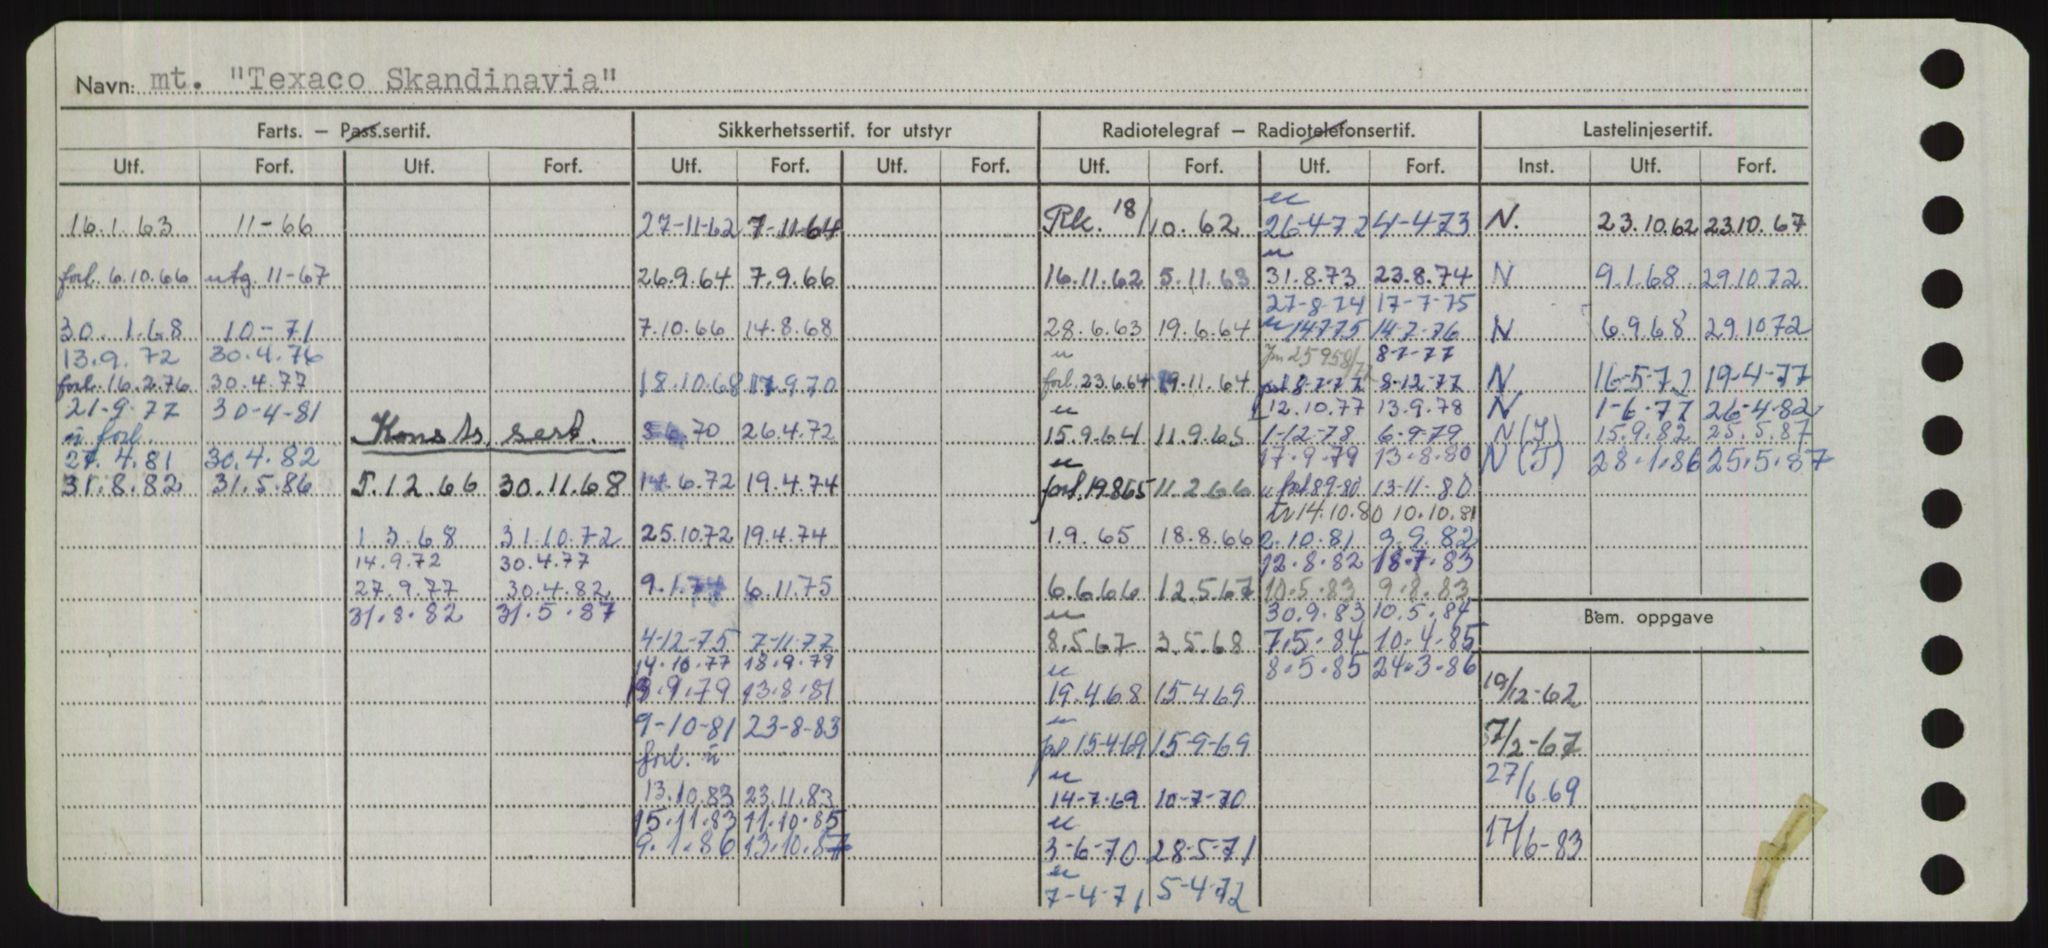 Navn: mt. "Texaco Skandinavia"
Farts. – Pass.sertif. Sikkerhetssertif. for utstyr Radiotelegraf – Radiotelefonsertif. Lastelinjesertif.
Utf. Forf. Utf. Forf. Utf. Forf. Utf. Forf. Utf. Forf. Utf. Forf. Inst. Utf. Forf.
16.1.63 11-66 27-11-62 7-11-64 Rk. 18/10.62 u 26-4-72 4-4-73 N. 23.10.62 23.10.67
forl. 6.10.66 utg. 11-67 26.9.64 7.9.66 16.11.62 5.11.63 u 31.8.73 23.8.74 N 9.1.68 29.10.72
27-8-74 17-7-75
30.1.68 10-71 7.10.66 14.8.68 28.6.63 19.6.64 u 14.7.75 14-7-76 N 6.9.68 29.10.72
13.9.72 30.4.76 u 8-7-77
forl. 16.2.76 30.4.77 18.10.68 17.9.70 forl. 23.6.64 19.11.64 forl 8-7-77 8-12-77 N 16-5-72 19-4-77
21-9-77 30-4-81 u 12.10.77 13.9.78 N 1-6-77 26-4-82
u forl. Konstr. sert. 70 26.4.72 15.9.64 11.9.65 1-12-78 6-9-79 N(I) 15.9.82 25.5.87
27.4.81 30.4.82 u 17.9.79 13.8.80 N(I) 28.1.86 25.5.87
31.8.82 31.5.86 5.12.66 30.11.68 14.6.72 19.4.74 forl. 19865 11.2.66 u forl 8.9.80 13-11-80
u 14.10.80 10.10.81
1.3.68 31.10.72 25.10.72 19.4.74 1.9.65 18.8.66 2-10-81 3.9.82
14.9.72 30.4.77 12.8.82 18.7.83
27.9.77 30.4.82 9.1.74 6.11.75 6.6.66 12.5.67 10.5.83 9.8.83
31.8.82 31.5.87 u 30.9.83 10.5.84 Bem. oppgave
4-12-75 7-11-77 8.5.67 3.5.68 7.5.84 10.4.85
14.10.77 18.9.79 u 8.5.85 24.3.86
13.9.79 13.8.81 19.4.68 15.4.69 19/12-62
9-10-81 23-8-83 u 7/2-67
forl. u forl 15-4-69 15-9-69
u 27/6.69
13.10.83 23.11.83 14-7-69 10-7-70
15.11.83 11.10.85 u
9.1.86 13.10.87 3-6-70 28-5-71 17/6-83
u
7-4-71 5-4-72